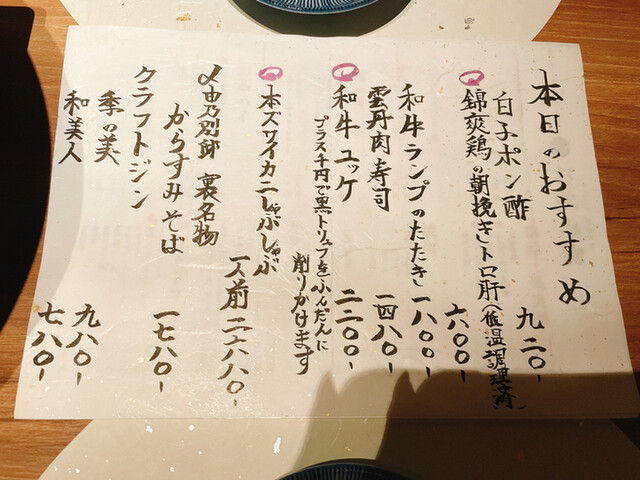 本日のおすすめ
白子ポン酢 九二〇-
錦爽鶏の朝挽きトロ肝(低温調理済) 六〇〇-
和牛ランプのたたき 一八〇〇-
雲丹肉寿司 一四八〇-
和牛ユッケ 二二〇〇-
プラス千円で黒トリュフをふんだんに
削りかけます
本ズワイカニしゃぶしゃぶ
一人前 二六八〇-
〆由乃別邸 裏名物
からすみそば 一七八〇-
クラフトジン
季の美 九八〇-
和美人 七八〇-